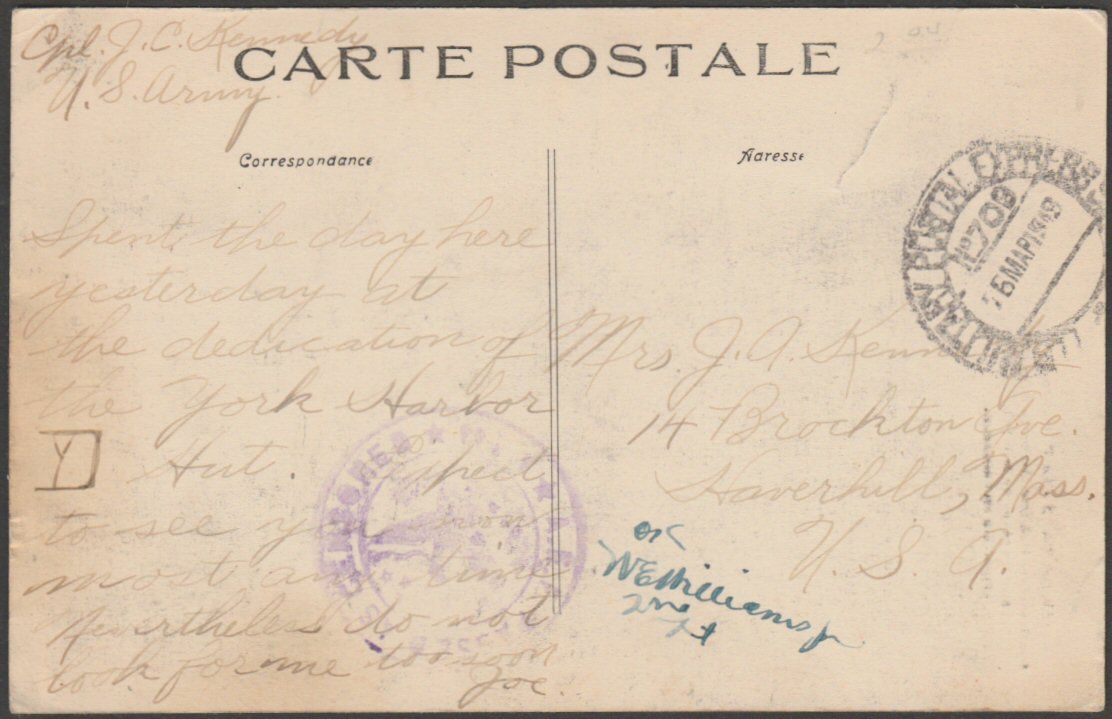 Cpl. J. C. Kennedy
U. S. Army.
CARTE POSTALE
Correspondance
Adresse
MILITARY POSTAL EXPRESS
No 702
16 MAR 1919
Spent the day here
yesterday at
the dedication of
the York Harbor
Y Hut. Expect
to see you from
most any time
Nevertheless do not
look for me too soon
Joe.
Mrs. J. A. Kennedy
14 Brockton Ave.
Haverhill, Mass.
U. S. A.
OK
WE Williams Jr
2nd Lt
CENSORED
A.E.F.